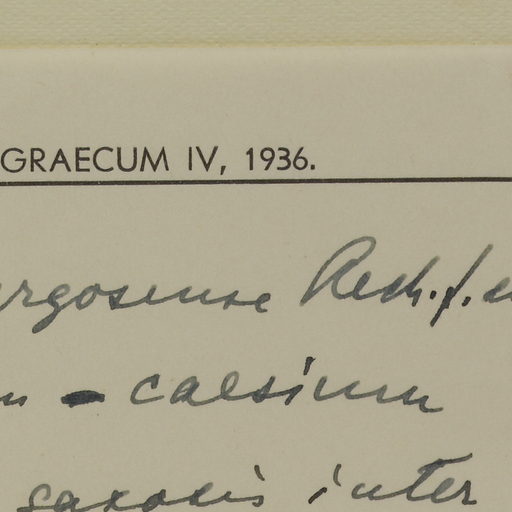 GRAECUM IV, 1936.
ergosense Rech. f.
– caesium
saxosis inter